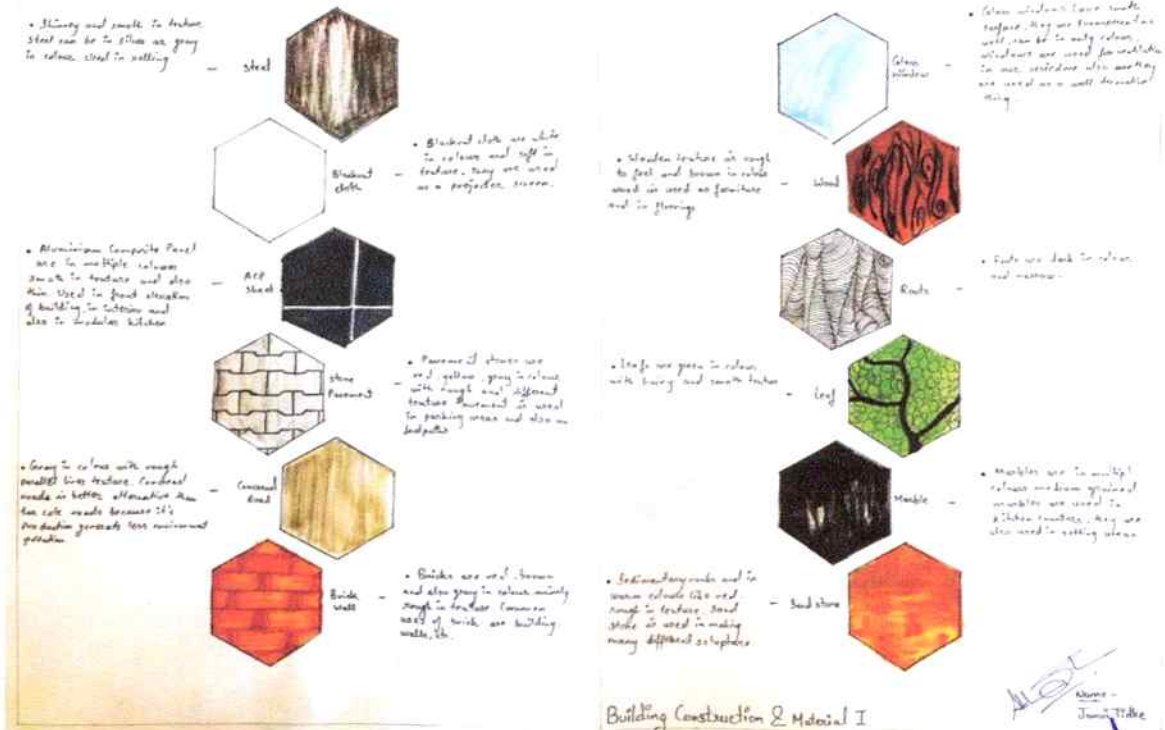 • Shiney and smooth in texture
steel can be in silver or gray
in colour. Used in
steel
• Blackout cloth are white
in colour and soft in
texture. They are used
as a projector screen.
Blackout
cloth
• Aluminium Composite Panel
are in multiple colours
smooth in texture and also
thin. Used in front elevation
of building, in interior and
also in modular kitchen
ACP
Sheet
• Pavement stones are
red, yellow, gray in colour
with rough and different
texture Pavement is used
in parking areas and also on
footpaths
Stone
Pavement
• Gray in colour with rough
parallel lines texture.
roads is better alternative than
roads because it's
production generate less
Road
• Bricks are red, brown
and also gray in colour mainly
rough in texture. Common
uses of brick are building,
walls, etc.
Brick
wall
• Glass windows have smooth
surface, they are transparent as
well, can be in any colour,
windows are used for ventilation
in also
are used as a wall decoration
thing.
Glass
window
• Wooden texture is rough
to feel and brown in colour
wood is used as furniture
and in floorings
Wood
• Roots are dark in colour
and narrow.
Roots
• Leafs are green in colour
with and smooth texture
Leaf
• Marbles are in multipl
colours medium grained
marbles are used in
kitchen counters, they are
also used in
Marble
• Sedimentary rocks and in
warm colours like red
rough in texture. Sand
stone is used in making
many different
Sand stone
Building Construction & Material I
Name -